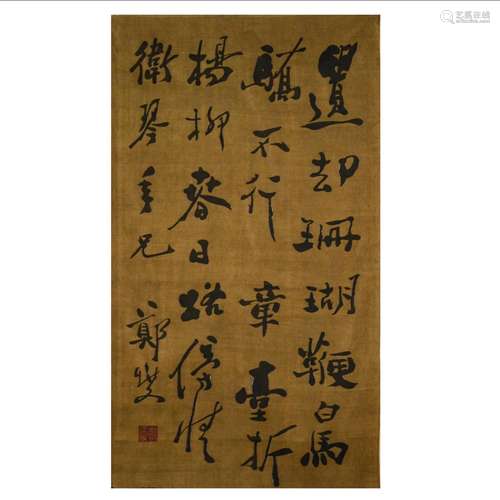 遺却珊瑚鞭白馬
驕不行章臺折
楊柳春日路傍情
衛琴年兄
鄭燮